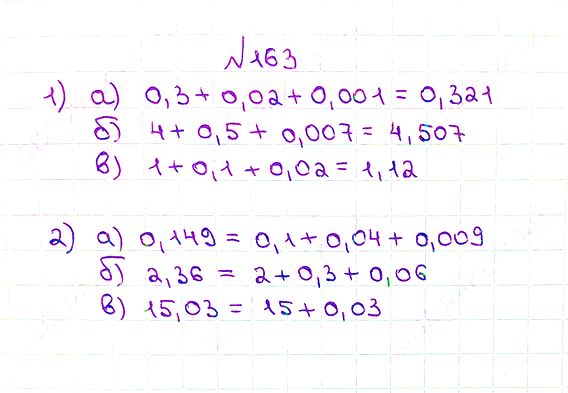 №163
1) а) 0,3 + 0,02 + 0,001 = 0,321
б) 4 + 0,5 + 0,007 = 4,507
в) 1 + 0,1 + 0,02 = 1,12
2) а) 0,149 = 0,1 + 0,04 + 0,009
б) 2,36 = 2 + 0,3 + 0,06
в) 15,03 = 15 + 0,03